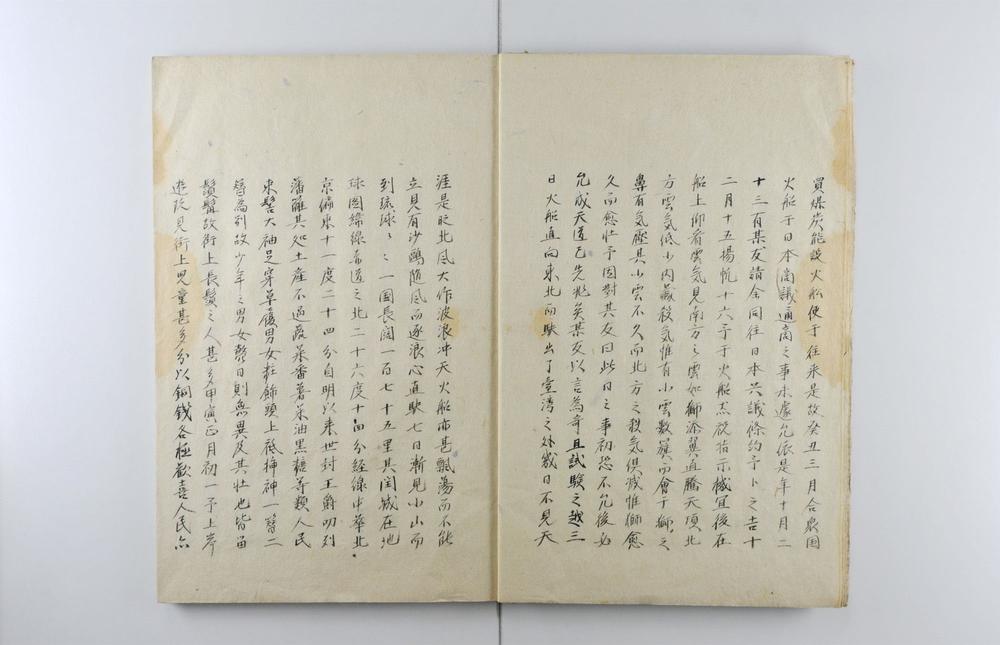 買煤炭能設火船便于往来是故癸丑三月合衆国
火船于日本商議通商之事未遽允依是年十月二
十三有某友請余同往日本共議條約予卜之吉十
二月十五揚帆十六予于火船
船上仰看雲氣見南方之雲如獅添翼直騰天頂北
方雲氣低小内藏殺氣惟有小雲数簇而會于獅之
鼻有氣壓其小雲不久而北方之殺氣俱滅惟獅愈
久而愈壮予因對其友曰此日之事初恐不允後必
允成天道已先兆矣某友以言為奇且試験之越三
日火船直向東北而駛出了臺湾之外幾日不見天
涯是時北風大作波浪冲天火船亦甚飄蕩而不能
立見有沙鷗随風而逐浪心直駛七日漸見小山而
到琉球々之一国長闊一百七十五里其国城在地
球圖緯線赤道之北二十六度十四分経線中華北
京偏東十一度二十四分自明以来世封王爵叨列
藩籬其処土産不過蔬菜番薯菜油黒糖等類人民
束髻大袖足穿草履男女粧飾頭上祗挿神一簪二
簪為別故少年之男女驀目則無異及其壮也皆留
鬚髯故街上長鬚之人甚多甲寅正月初一予上岑
遊玩見街上児童甚多分以銅錢各極歓喜人民亦